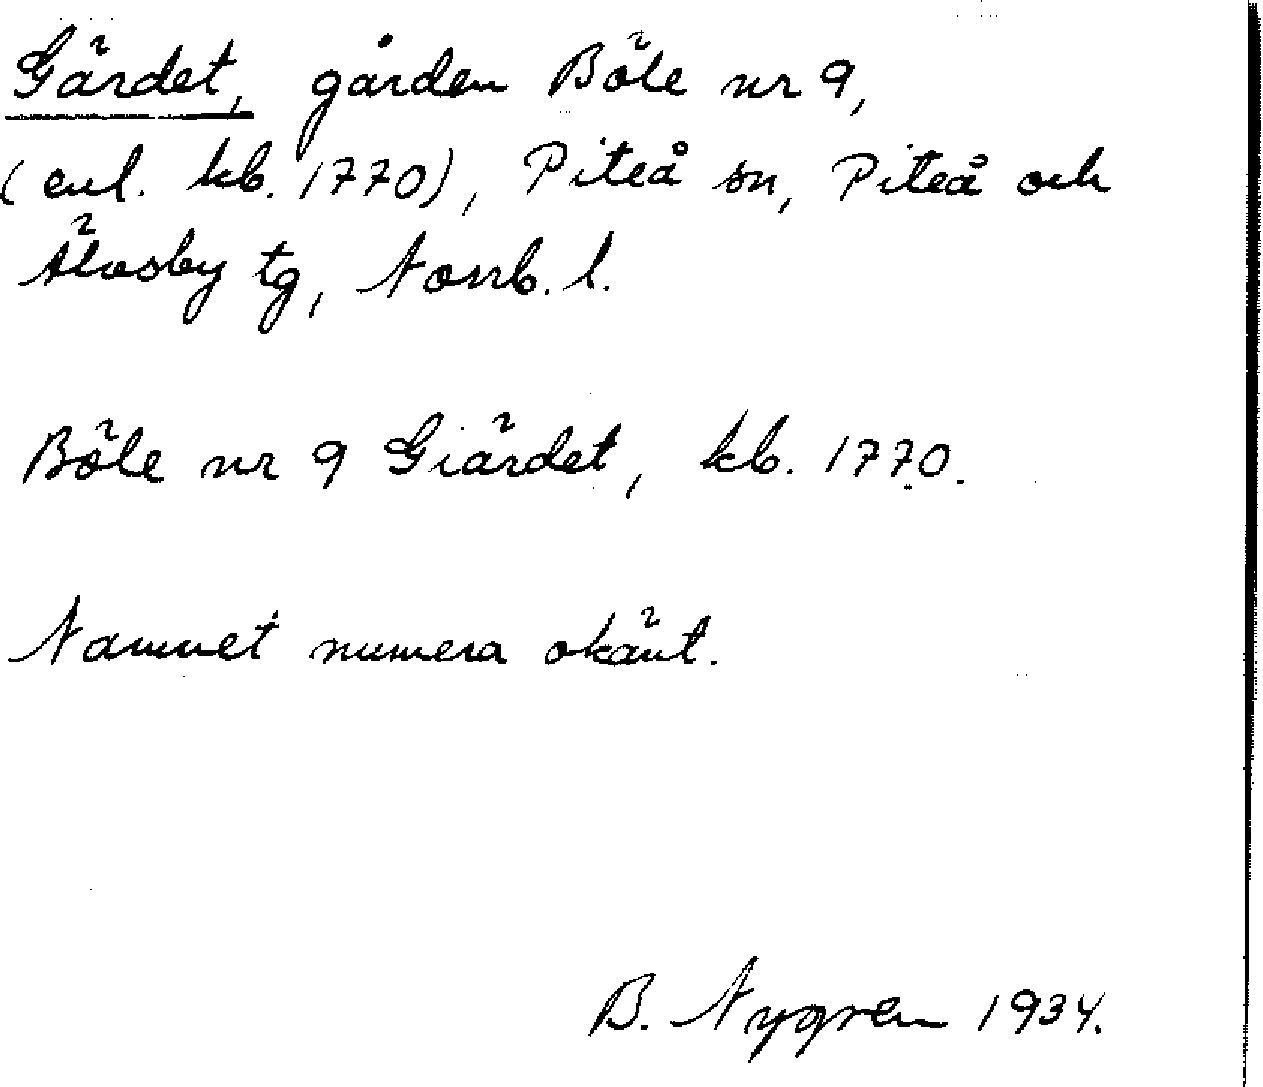 Gärdet, gården Böle nr 9,
(enl. kb. 1770), Piteå sn, Piteå och
Älvsby tg, Norrb. l.
Böle nr 9 Giärdet, kb. 1770.
Namnet numera okänt.
B. Nygren 1934.